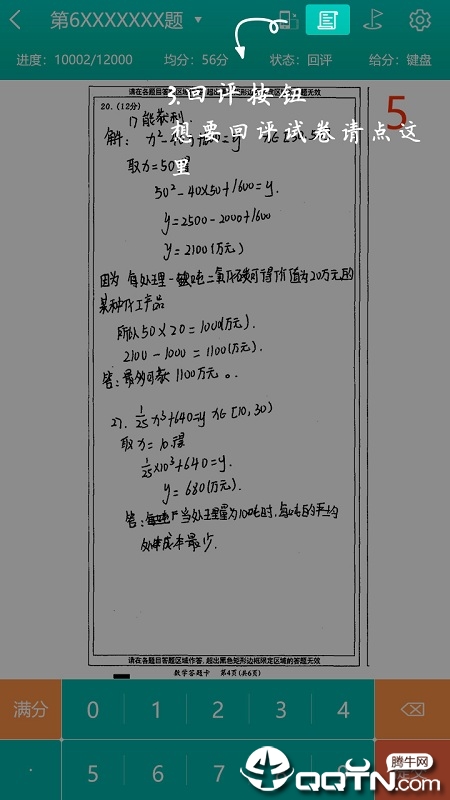 第6XXXXXXX题
进度：10002/12000 均分：56分 状态：回评 给分：键盘
3.回评按钮
想要回评试卷请点这里
5
20.（12分）
取x=50得
50²-40×50+1600=y.
y=2500-2000+1600
y=2100(万元)
因为 每处理一吨二氧化碳可得价值为20万元的
某种化工产品
所以50×20=1000(万元).
2100-1000=1100(万元).
答:最多可获1100万元。
27. 1/25 x³+640=y x∈[10,30)
取x=10.得
1/25×10³+640=y.
y=680(万元).
当处理量为10吨时,每吨的平均
处理成本最少.
请在各题目答题区域作答，超出黑色矩形边框限定区域的答题无效
数学答题卡 第4页(共6页)
满分 0 1 2 3 4
· 5 6 7
腾牛网
QQTN.com